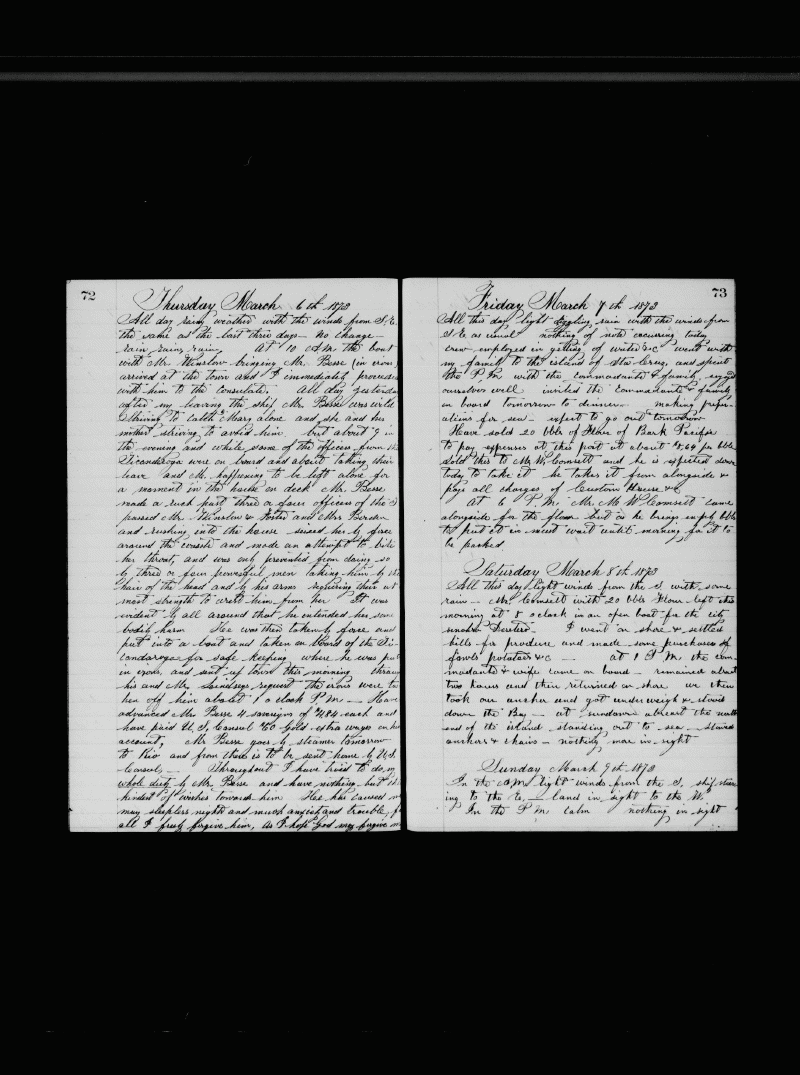 72
Thursday March 6th 1873
All day rainy weather with the winds from S.E.
the same as the last three days - no change -
rain, rain, rain, At 10 A.M. the boat
with Mr Winslow bringing Mr. Besse (in irons)
arrived at the town and I immediately proceeded
with him to the consulate, all day yesterday
after my leaving the ship Mr. Besse was wild
striving to catch Mary alone and she and her
mother striving to avoid him, but about 9 in
the evening and while some of the officers from the
Ticonderoga were on board and about taking their
leave and M. happening to be left alone for
a moment in the house on deck Mr. Besse
made a rush past three or four officers of the
passed Mr. Winslow & Foster and Mrs
and rushing into the house seized her by force
around the waist and made an attempt to bite
her throat, and was only prevented from doing so
by three or four powerful men taking him by the
hair of the head and by his arms requiring their ut
most strength to wrest him from her It was
evident to all around that he intended her some
bodily harm He was then taken by force and
put into a boat and taken on board of the Ti-
conderoga for safe keeping where he was put
in irons, and sent up town this morning through
his and Mr. request the irons were ta
ken off him about 1 o clock P.M. - Have
advanced Mr. Besse 4 sovereigns of $4.84 each and
have paid U.S. Consul $60 Gold extra wages on his
account, Mr Besse goes by steamer tomorrow
to Rio and from there is to be sent home by U.S.
Consul, - Throughout I have tried to do, my
whole duty by Mr Besse and have nothing but the
kindest of wishes towards him He has caused me
many sleepless nights and much anxiety and trouble, for
all I freely forgive him, as I hope God may forgive me
73
Friday March 7th 1873
All this day light drizzling rain with the winds from
S.E. as usual nothing of note occurring today
crew employed in getting of water &c went with
my family to the island of Sta Cruz, and spent
the P.M. with the commandante & family enjoyed
ourselves well invited the commandante & family
on board tomorrow to dinner making prepar-
ations for sea - expect to go out tomorrow
Have sold 20 bbls of Flour of Bark Pacific
to pay expenses at this port at about $8,64 per bble
sold this to Mr W. Comsett and he is expected down
today to take it he takes it from alongside &
pays all charges of Custom House &c
At 6 P.M. Mr. M W Comsett came
alongside for the flour but as he brings empty bbls
to put it in must wait until morning for it to
be packed.
Saturday March 8th 1873
All this day light winds from the S. with some
rain - Mr. Comsett with 20 bbls Flour left this
morning at 8 o clock in an open boat for the city
I went on shore & settled
bills for produce and made some purchases of
fowls potatoes &c - at 1 P.M. the com-
mandante & wife came on board - remained about
two hours and then returned on shore we then
took our anchor and got underweigh & stood
down the Bay - at sundown abreast the north
end of the island standing out to sea stowed
anchors & chains - nothing more in sight
Sunday March 9th 1873
In the A.M. light winds from the S. ship steer
ing to the E, - land in sight to the W.
In the P.M. calm nothing in sight